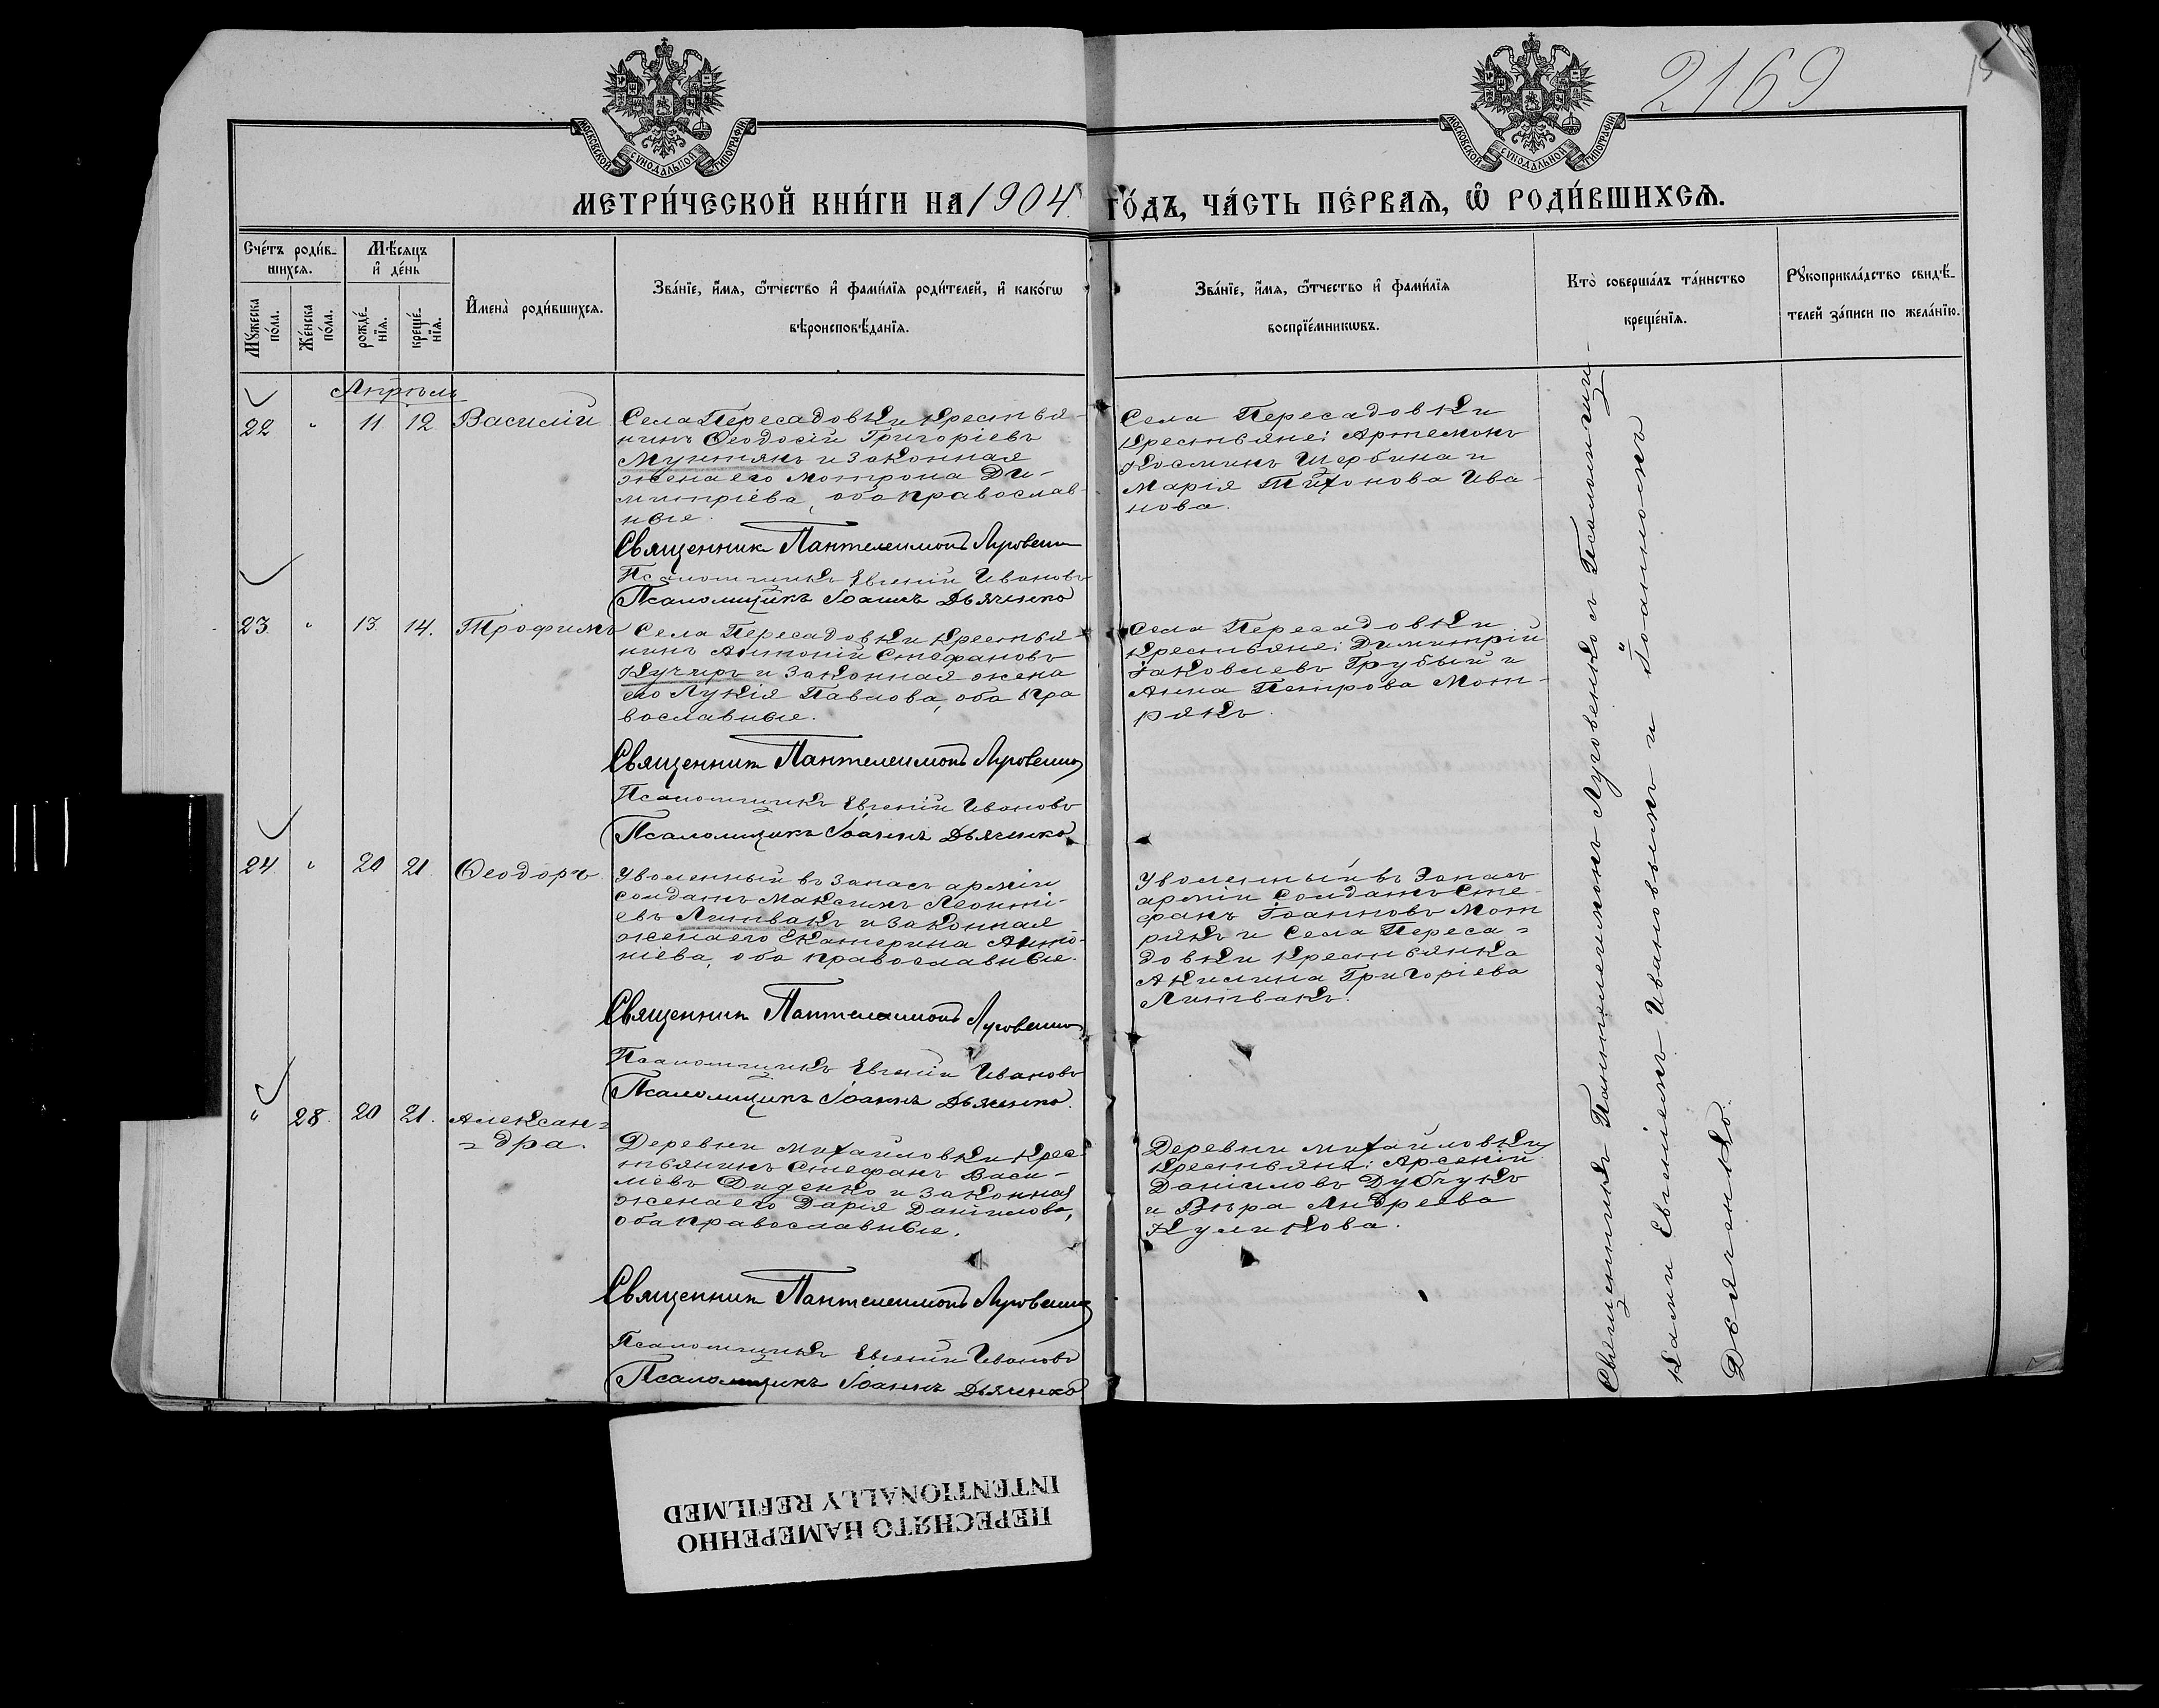 2169
15
МОСКОВСКОЙ СѴНОДАЛЬНОЙ ТИПОГРАФІИ
МОСКОВСКОЙ СѴНОДАЛЬНОЙ ТИПОГРАФІИ
МЕТРИ́ЧЕСКОЙ КНИ́ГИ НА 1904
ГО́ДЪ, ЧА́СТЬ ПЕ́РВАѦ, Ѽ РОДИ́ВШИХСѦ.
Сче́тъ роди́в-
шихся.
Мѣ́сяцъ
и҆ де́нь
Мꙋ́жеска
по́ла.
Же́нска
по́ла.
рожде́-
нїя.
креще́-
нїя.
И҆мена̀ роди́вшихся.
Зва́нїе, и҆́мя, ѻ҆́тчество и҆ фами́лїя роди́телей, и҆ како́гѡ
вѣроисповѣ́данїя.
Зва́нїе, и҆́мя, ѻ҆́тчество и҆ фами́лїя
воспрїе́мникѡвъ.
Кто̀ соверша́лъ та́инство
креще́нїя.
Рꙋкоприкла́дство свидѣ́-
телей за́писи по жела́нїю.
Апрѣль
22 " 11 12 Василій
Села Пересадовки крестья-
нинъ Ѳеодосій Григоріевъ
Мунтянъ и законная
жена его Мотрона Ди-
митріева, оба православ-
ные.
Священник Пантелеимонъ Луговенко
Псаломщикъ Евгеній Ивановъ
Псаломщикъ Іоаннъ Дьяченко
Села Пересадовки
крестьяне: Артемонъ
Косминъ Щербина и
Марія Тихонова Ива-
нова.
23. " 13 14. Трофимъ
Села Пересадовки крестья-
нинъ Антоній Стефановъ
Кучмръ и законная жена
его Лукія Павлова, оба пра
вославные.
Священник Пантелеимонъ Луговенко
Псаломщикъ Евгеній Ивановъ
Псаломщикъ Іоаннъ Дьяченко
Села Пересадовки
крестьяне: Димитрій
Іаковлевъ Грубый и
Анна Петрова Мот-
рякъ.
24 " 20 21 Ѳеодоръ
Уволенный въ запасъ арміи
солдатъ Максимъ Леонті-
евъ Литвакъ и законная
жена его Екатерина Анто-
ніева, оба православные.
Священник Пантелеимонъ Луговенко
Псаломщикъ Евгеній Ивановъ
Псаломщикъ Іоаннъ Дьяченко.
Уволенный въ Запасъ
арміи Солдатъ Сте-
фанъ Іоанновъ Мот
рякъ и Села Переса-
довки крестьянка
Акилина Григоріева
Литвакъ.
" 28. 20 21. Алексан=
=дра.
Деревни Михаиловки крес-
тьянинъ Стефанъ Васи-
льевъ Диденко и законная
жена его Дарія Даніилова,
оба православные.
Священник Пантелеимонъ Луговенко
Псаломщикъ Евгеній Ивановъ
Псаломщикъ Іоаннъ Дьяченко
Деревни Михаиловки
крестьяне: Арсеній
Даніиловъ Дубчукъ
и Вѣра Андреева
Куликова.
Священникъ Пантелеимонъ Луговенко съ Псаломщи-
ками Евгеніемъ Ивановымъ и Іоанномъ
Дьяченко.
ПЕРЕСНЯТО НАМЕРЕННО
INTENTIONALLY REFILMED